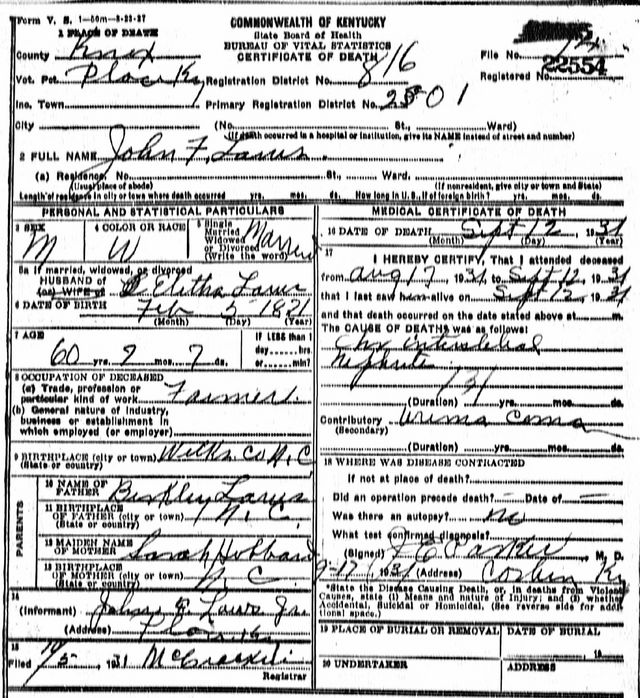 Form V. S. 1-50m-3-23-27
COMMONWEALTH OF KENTUCKY
State Board of Health
BUREAU OF VITAL STATISTICS
CERTIFICATE OF DEATH
1 PLACE OF DEATH
County Knox
File No.
22554
Vot. Pct. Place Ky Registration District No. 816
Registered No.
Inc. Town Primary Registration District No. 2801
City (No. St., Ward)
(If death occurred in a hospital or institution, give its NAME instead of street and number)
2 FULL NAME John F. Laws
(a) Residence. No. St., Ward.
(Usual place of abode) (If nonresident, give city or town and State)
Length of residence in city or town where death occurred yrs. mos. ds. How long in U. S., if of foreign birth? yrs. mos. ds.
PERSONAL AND STATISTICAL PARTICULARS
3 SEX M
4 COLOR OR RACE W
5 Single Married Widowed or Divorced (Write the word) Married
5a If married, widowed, or divorced
HUSBAND of
(or) WIFE of Elitha Laws
6 DATE OF BIRTH Feb 5 1871
(Month) (Day) (Year)
7 AGE 60 yrs. 9 mos. 7 ds.
IF LESS than 1 day hrs. or min?
8 OCCUPATION OF DECEASED
(a) Trade, profession or particular kind of work Farmer
(b) General nature of industry, business or establishment in which employed (or employer)
9 BIRTHPLACE (city or town) Wilks Co N. C.
(State or country)
PARENTS
10 NAME OF FATHER Binkley Laws
11 BIRTHPLACE OF FATHER (city or town) N. C.
(State or country)
12 MAIDEN NAME OF MOTHER Sarah Hubbard
13 BIRTHPLACE OF MOTHER (city or town) N. C.
(State or country)
14
(Informant) John Laws Jr.
(Address)
15
Filed 10/5, 1931 McCracken
Registrar
MEDICAL CERTIFICATE OF DEATH
16 DATE OF DEATH Sept 12 1931
(Month) (Day) (Year)
17 I HEREBY CERTIFY, That I attended deceased
from Aug 17 1931, to Sept 12, 1931
that I last saw him alive on Sept 12, 1931
and that death occurred on the date stated above at m.
The CAUSE OF DEATH was as follows:
Chr interstitial
Nephritis
131
(Duration) yrs. mos. ds.
Contributory Urema Coma
(Secondary)
(Duration) yrs. mos. ds.
18 WHERE WAS DISEASE CONTRACTED
If not at place of death?
Did an operation precede death? — Date of —
Was there an autopsy? no
What test confirmed diagnosis?
(Signed) Parker, M. D.
9-17, 1931 (Address) Corbin Ky
*State the Disease Causing Death, or, in deaths from Violent Causes, state (1) Means and nature of Injury; and (2) whether Accidental, Suicidal or Homicidal. (See reverse side for additional space.)
19 PLACE OF BURIAL OR REMOVAL DATE OF BURIAL
19
20 UNDERTAKER ADDRESS